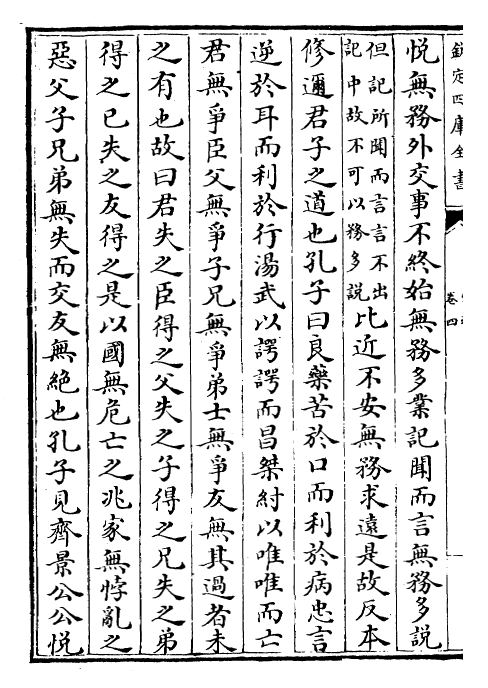 欽定四庫全書
卷四
悅無務外交事不終始無務多業記聞而言無務多說
但記所聞而言言不出
記中故不可以務多說
比近不安無務求遠是故反本
修邇君子之道也孔子曰良藥苦於口而利於病忠言
逆於耳而利於行湯武以諤諤而昌桀紂以唯唯而亡
君無爭臣父無爭子兄無爭弟士無爭友無其過者未
之有也故曰君失之臣得之父失之子得之兄失之弟
得之已失之友得之是以國無危亡之兆家無悖亂之
惡父子兄弟無失而交友無絶也孔子見齊景公公悅